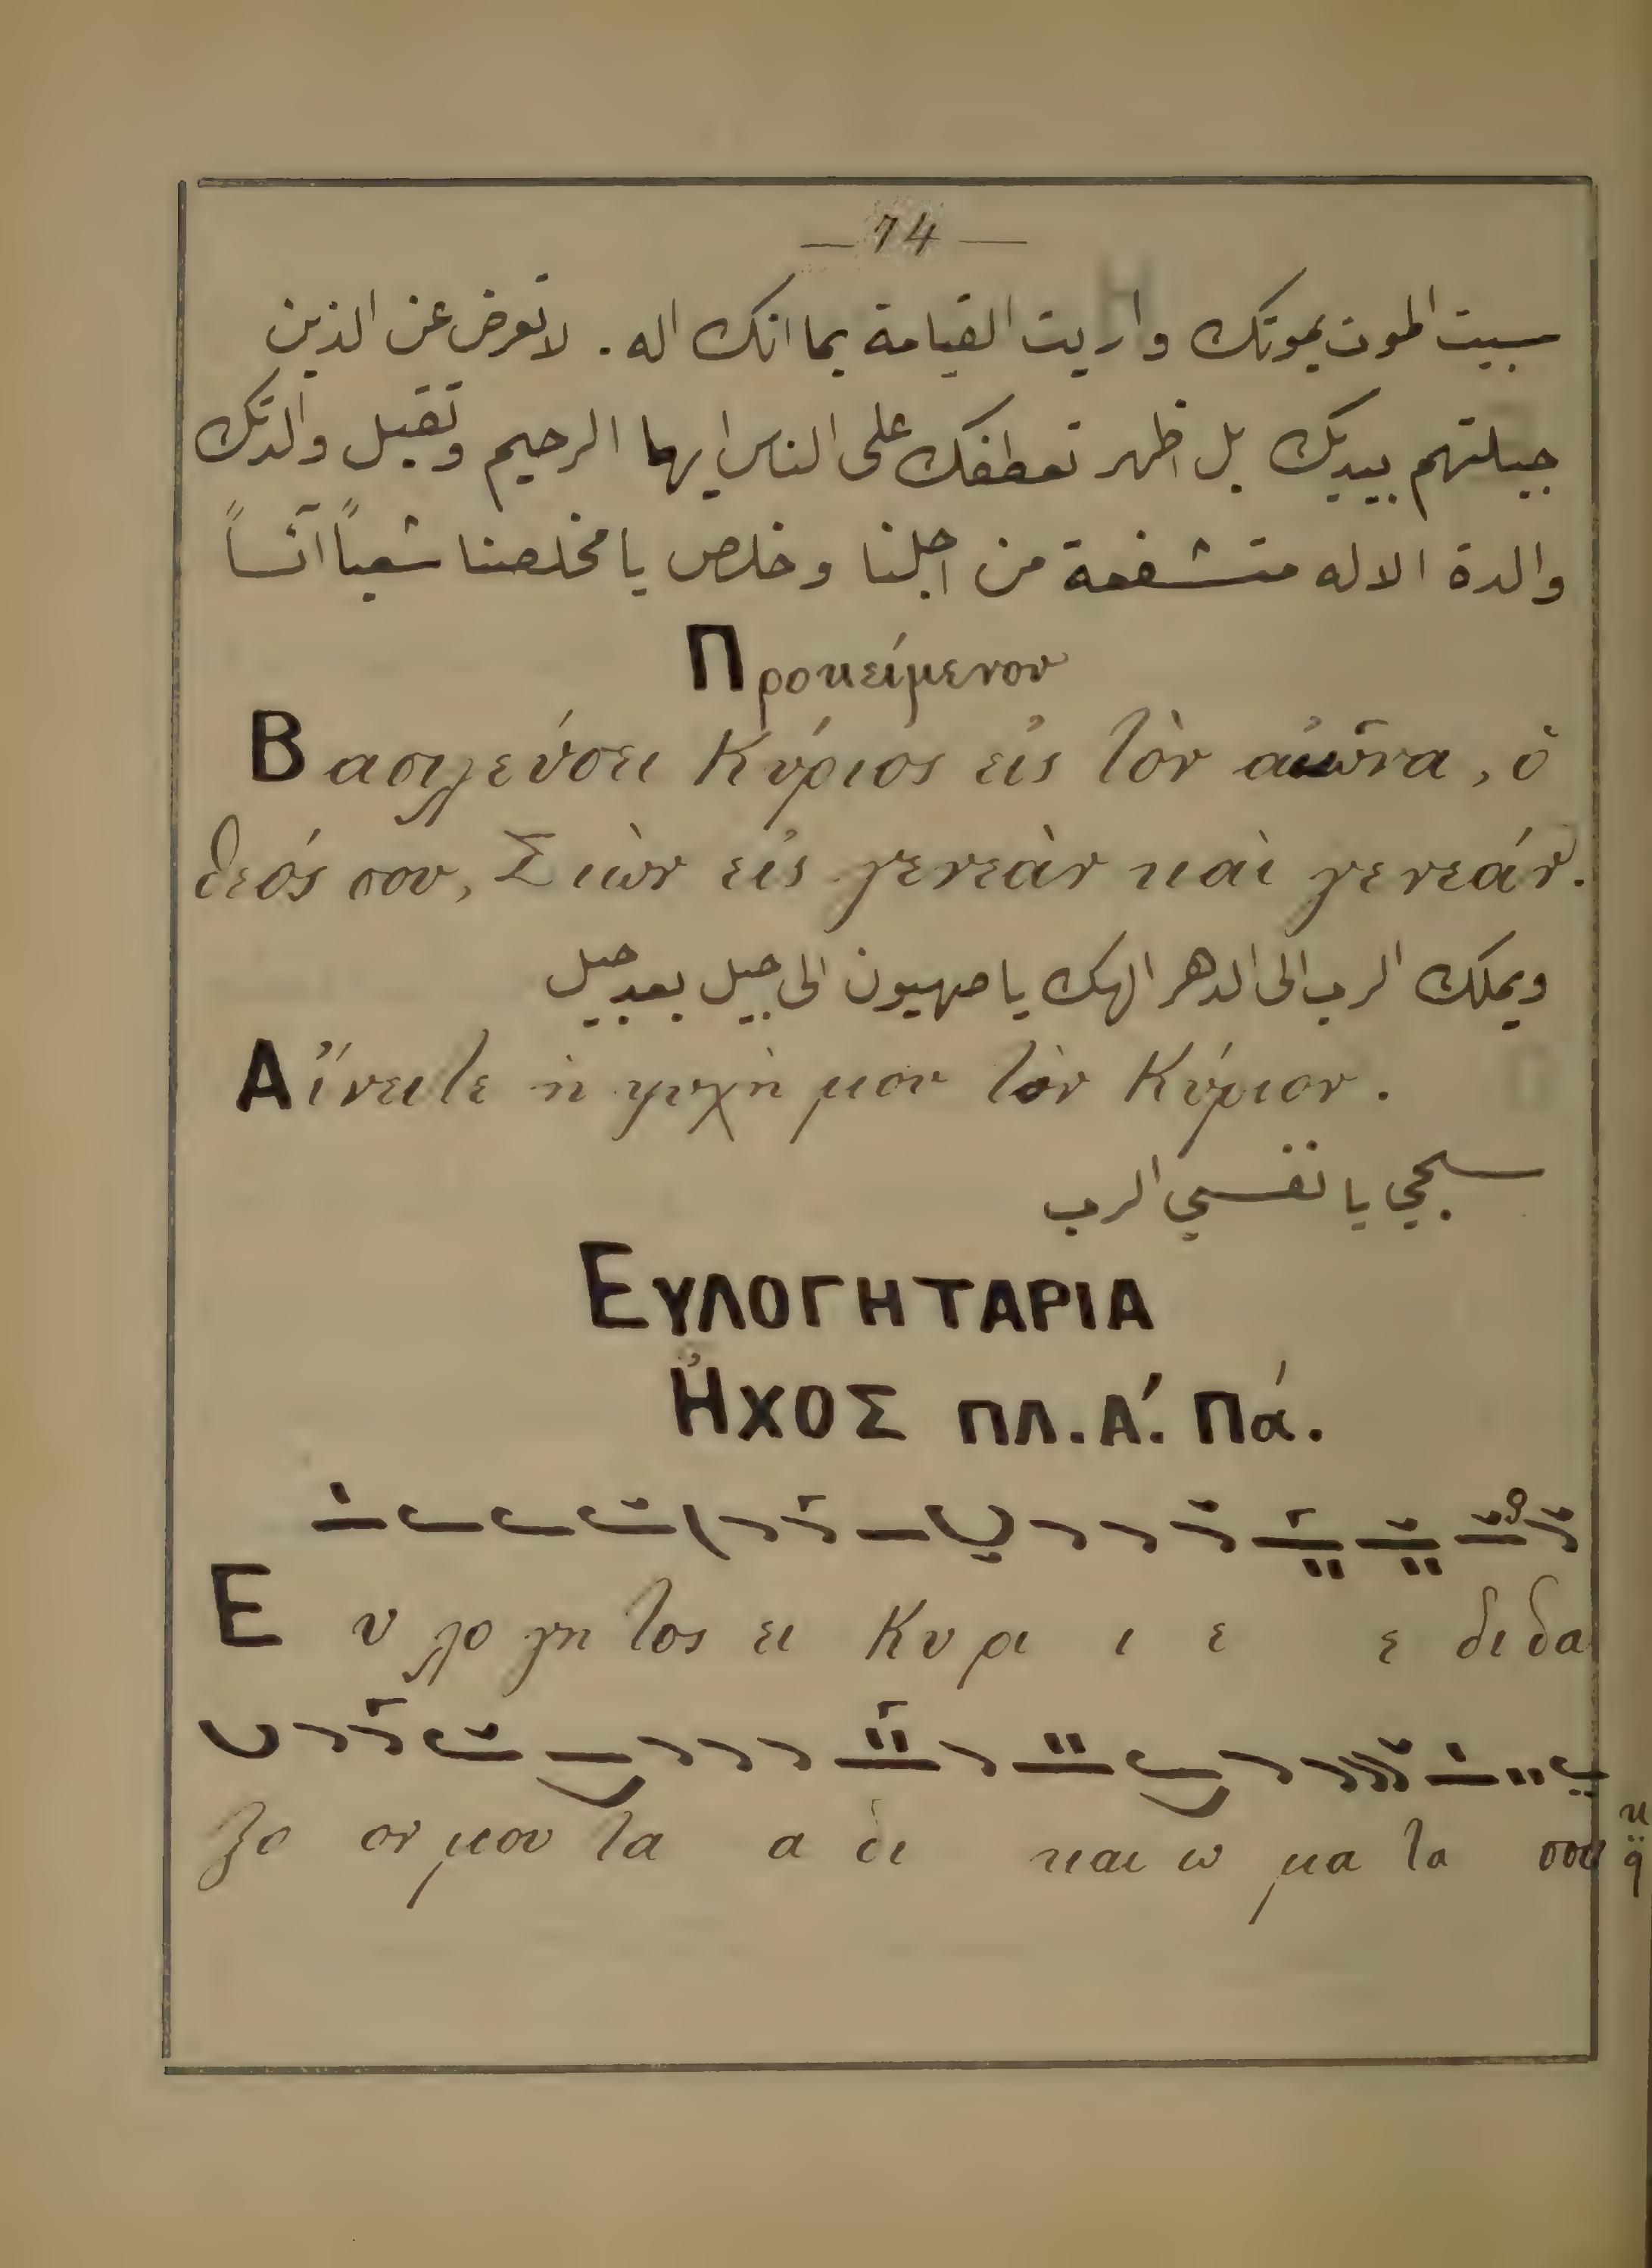 — 74 —
سبيت الموت بموتك واريت القيامة بما انك اله. لا تعرض عن الذين
جبلتهم بيديك بل اظهر تعطفك على الناس ايها الرحيم وتقبل والدتك
والدة الاله متشفعة من اجلنا وخلص يا مخلصنا شعباً آئساً
Προκείμενον
Βασιλεύσει Κύριος εἰς τὸν αἰῶνα, ὁ
θεός σου, Σιὼν εἰς γενεὰν καὶ γενεάν.
ويملك الرب الى الدهر الهك يا صهيون الى جيل بعد جيل
Αἴνειτε ἡ ψυχὴ μου τὸν Κύριον.
سبحي يا نفسي الرب
ΕΥΛΟΓΗΤΑΡΙΑ
ἨΧΟΣ ΠΛ. Α΄. Πά.
Ε υ λο γη τος ει Κυ ρι ι ε ε δι δα
ξο ον μου τα α δι και ω μα τα σου